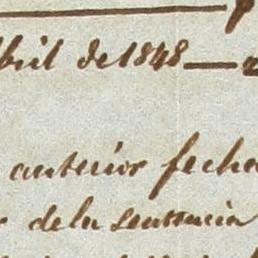 bril de 1848
anterior fecha
de la sentencia